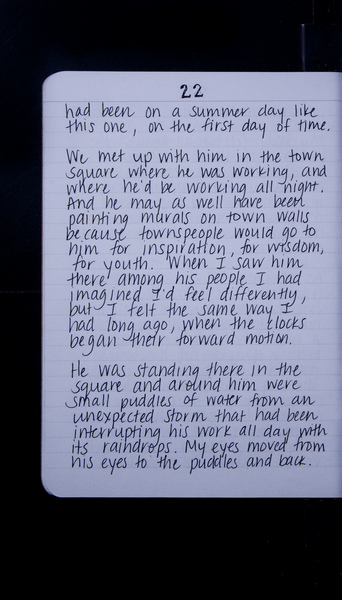 22
had been on a summer day like
this one, on the first day of time.
We met up with him in the town
square where he was working, and
where he'd be working all night.
And he may as well have been
painting murals on town walls
because townspeople would go to
him for inspiration, for wisdom,
for youth. When I saw him
there among his people I had
imagined I'd feel differently,
but I felt the same way I
had long ago, when the clocks
began their forward motion.
He was standing there in the
square and around him were
small puddles of water from an
unexpected storm that had been
interrupting his work all day with
its raindrops. My eyes moved from
his eyes to the puddles and back.